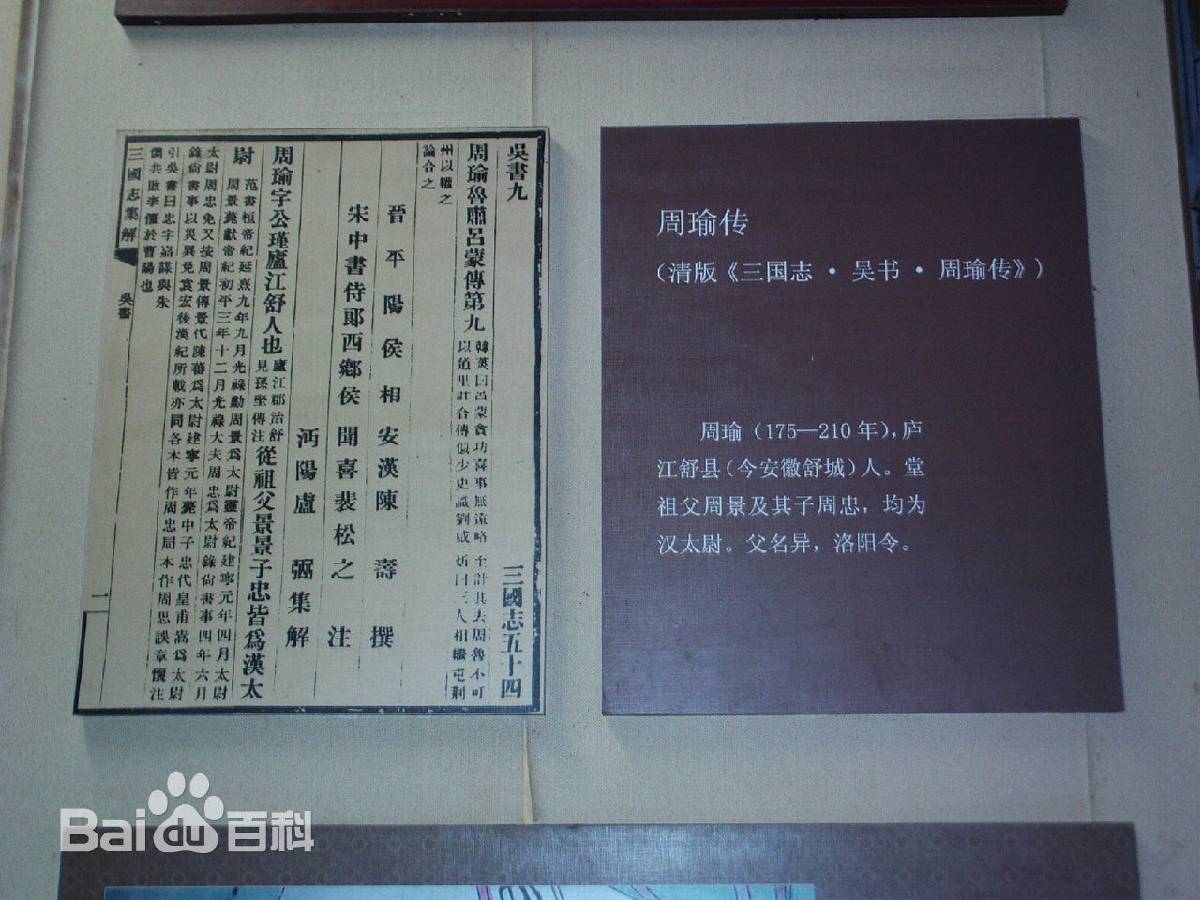 吳書九
三國志五十四
周瑜魯肅呂蒙傳第九
韓菼曰呂蒙貪功喜事無遠略至計其去周魯不可
以道里計合傳似少史識劉咸炘曰三人相繼屯荆
州以權之
論合之
晉平陽侯相安漢陳壽撰
宋中書侍郎西鄉侯聞喜裴松之注
沔陽盧弼集解
周瑜字公瑾廬江舒人也
廬江郡治舒
見孫堅傳注
從祖父景景子忠皆爲漢太
尉
范書桓帝紀延熹九年九月光祿勳周景爲太尉靈帝紀建寧元年四月太尉
周景薨獻帝紀初平三年十二月光祿大夫周忠爲太尉錄尚書事四年六月
太尉周忠免又按周景傳景代陳蕃爲太尉建寧元年薨中子忠代皇甫嵩爲太尉
錄尚書事以災異免袁宏後漢紀所載亦同各本皆作周忠局本作周思誤章懷注
引吳書曰忠字嘉謀與朱
儁共敗李傕於曹陽也
三國志集解
吳書
一
周瑜传
(清版《三国志·吴书·周瑜传》)
周瑜（175—210年），庐
江舒县（今安徽舒城）人。堂
祖父周景及其子周忠，均为
汉太尉。父名异，洛阳令。
Bai du 百科